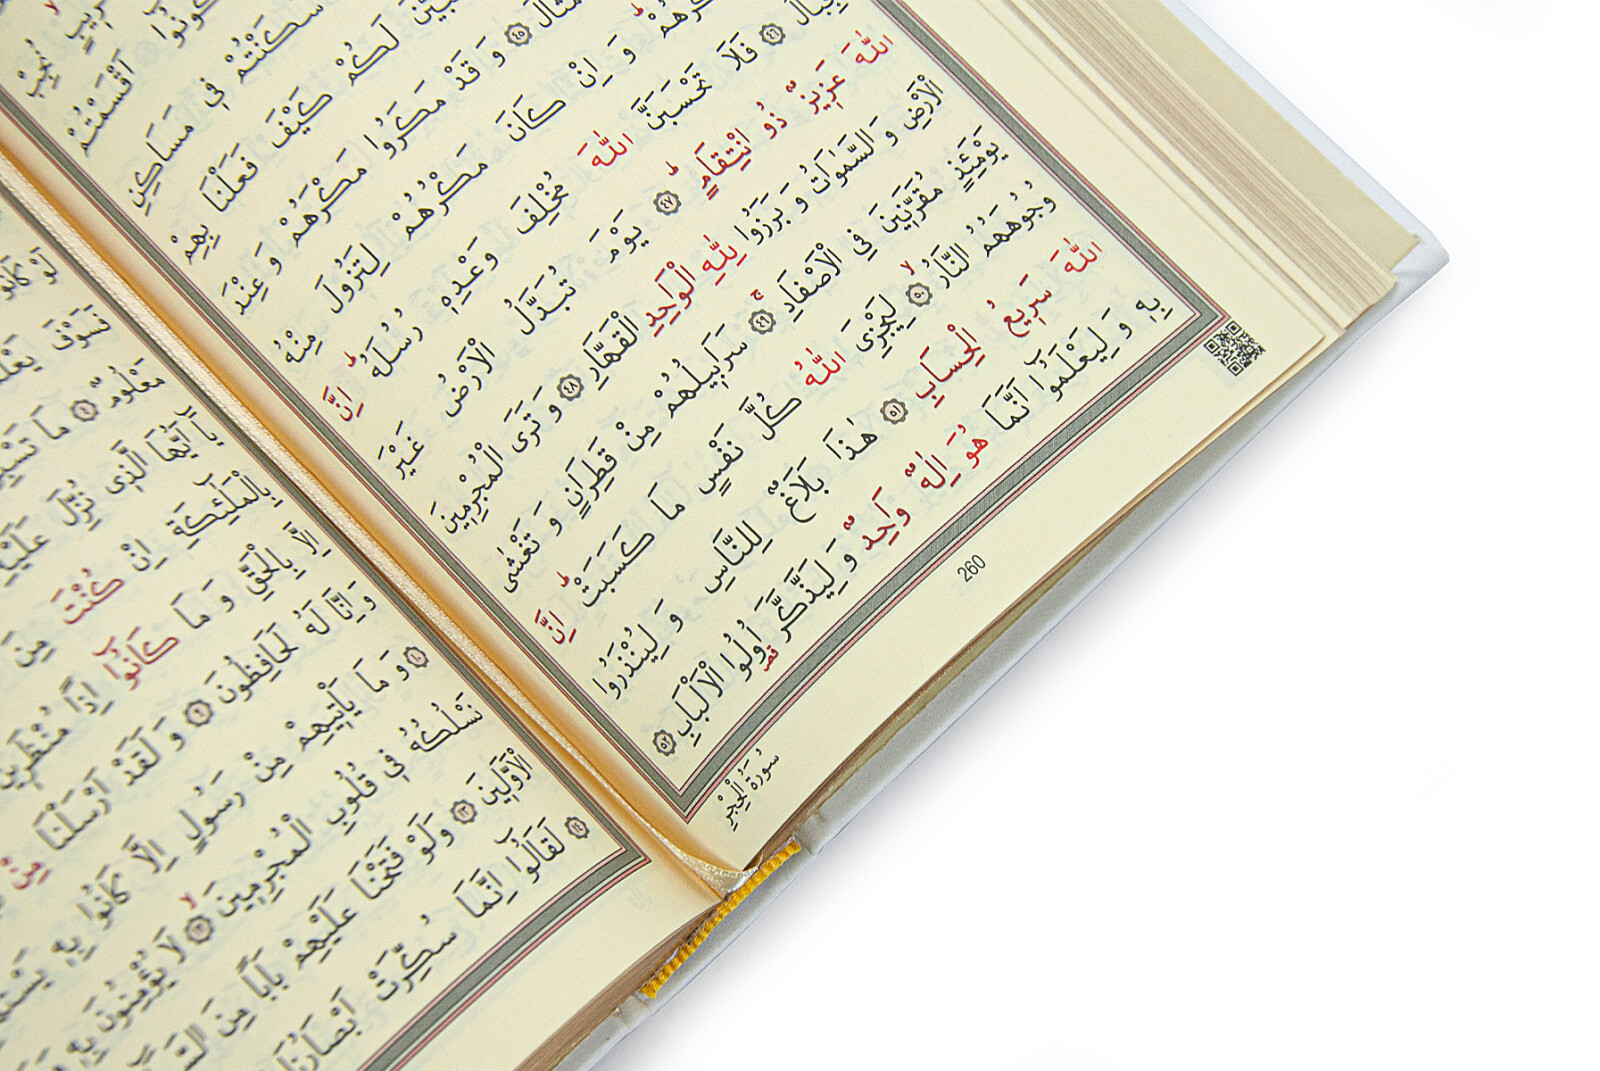 قَرِيبٍ نُجِبْ
اَقْسَمْتُمْ
وَسَكَنْتُمْ فِي مَسَاكِنِ
لَكُمْ كَيْفَ فَعَلْنَا بِهِمْ
﴿٤٥﴾ وَقَدْ مَكَرُوا مَكْرَهُمْ وَعِنْدَ
وَاِنْ كَانَ مَكْرُهُمْ لِتَزُولَ مِنْهُ
﴿٤٦﴾ فَلَا تَحْسَبَنَّ اللّٰهَ مُخْلِفَ وَعْدِهِ رُسُلَهُ اِنَّ
اللّٰهَ عَزِيزٌ ذُو انْتِقَامٍ ﴿٤٧﴾ يَوْمَ تُبَدَّلُ الْاَرْضُ غَيْرَ
الْاَرْضِ وَالسَّمٰوَاتُ وَبَرَزُوا لِلّٰهِ الْوَاحِدِ الْقَهَّارِ ﴿٤٨﴾ وَتَرَى الْمُجْرِمِينَ
يَوْمَئِذٍ مُقَرَّنِينَ فِي الْاَصْفَادِ ﴿٤٩﴾ سَرَابِيلُهُمْ مِنْ قَطِرَانٍ وَتَغْشٰى
وُجُوهَهُمُ النَّارُ ﴿٥٠﴾ لِيَجْزِيَ اللّٰهُ كُلَّ نَفْسٍ مَا كَسَبَتْ اِنَّ
اللّٰهَ سَرِيعُ الْحِسَابِ ﴿٥١﴾ هٰذَا بَلَاغٌ لِلنَّاسِ وَلِيُنْذَرُوا
بِهِ وَلِيَعْلَمُوا اَنَّمَا هُوَ اِلٰهٌ وَاحِدٌ وَلِيَذَّكَّرَ اُولُوا الْاَلْبَابِ ﴿٥٢﴾
260
سُورَةُ الْحِجْرِ
لَوْ كَانُوا
فَسَوْفَ
مَعْلُومٌ ﴿٤﴾ مَا
يَا اَيُّهَا الَّذِي نُزِّلَ عَلَيْهِ
بِالْمَلٰئِكَةِ اِنْ كُنْتَ مِنَ
اِلَّا بِالْحَقِّ وَمَا كَانُوا اِذًا مُنْظَرِينَ
وَاِنَّا لَهُ لَحَافِظُونَ ﴿٩﴾ وَلَقَدْ اَرْسَلْنَا مِنْ
﴿١٠﴾ وَمَا يَأْتِيهِمْ مِنْ رَسُولٍ اِلَّا كَانُوا بِهِ
نَسْلُكُهُ فِي قُلُوبِ الْمُجْرِمِينَ ﴿١٢﴾ لَا يُؤْمِنُونَ بِهِ
الْاَوَّلِينَ ﴿١٣﴾ وَلَوْ فَتَحْنَا عَلَيْهِمْ بَابًا مِنَ
﴿١٤﴾ لَقَالُوا اِنَّمَا سُكِّرَتْ اَبْصَارُنَا